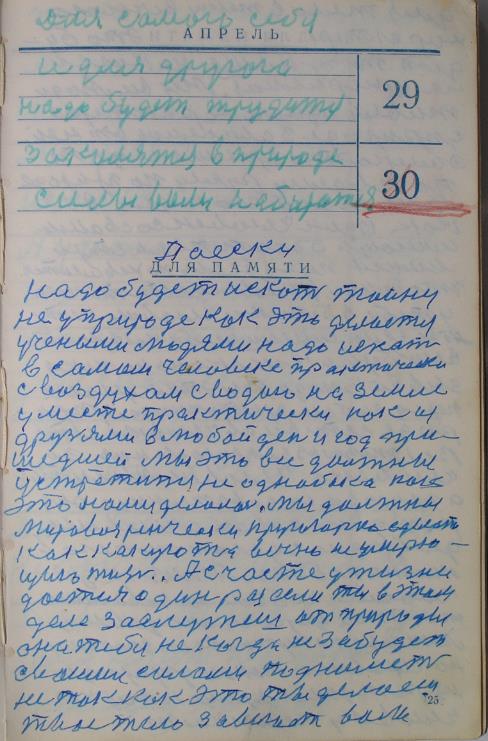 для самого себя
АПРЕЛЬ
и для другого
29
надо будет трудится
закалятся в природе
30
силы воли набиратся
Паески
ДЛЯ ПАМЯТИ
надо будет искат тайну
не у природе как это делается
учеными людями надо искат
в самом человеке практически
с воздухам с водою на земле
умести практически как и
друзями в любой ден и год при
шедшей мы это все должны
устретити не однобока как
это нами делалос. мы должны
сделат
как какуюто вечно неумираю-
щуюс
А счасте у жизни
дается один раз если ты в этом
деле заслужиш от природы
она тебя не когда не забудет
своими силами поднимет
не так как это ты делаеш
твое тело
25